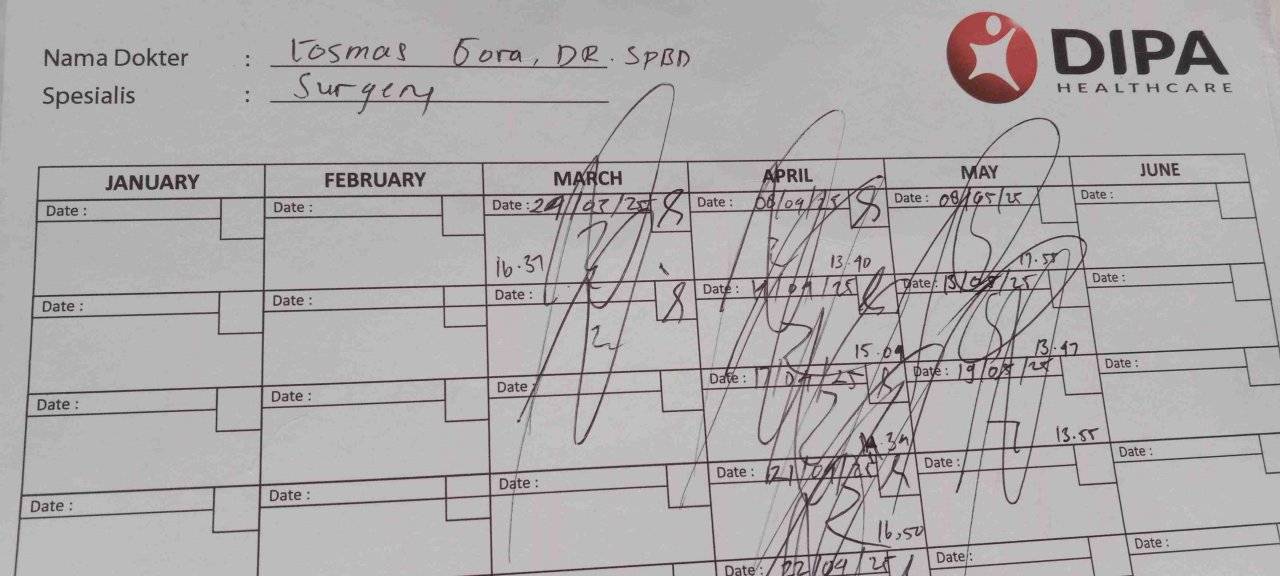 DIPA
HEALTHCARE
Nama Dokter : Kosmas Gora, DR. SPBD
Spesialis : Surgery
JANUARY FEBRUARY MARCH APRIL MAY JUNE
Date : Date : Date : 24/03/25 Date : 08/04/25 Date : 08/05/25 Date :
16.37 13.40 17.55
Date : Date : Date : Date : /04/25 Date : 15/05/25 Date :
15.09 13.47
Date : Date : Date : Date : 17/04/25 Date : 19/05/25 Date :
13.55
Date : Date : Date : Date : 21/04/25 Date : Date :
16.50
Date : 22/04/25 Date : Date :